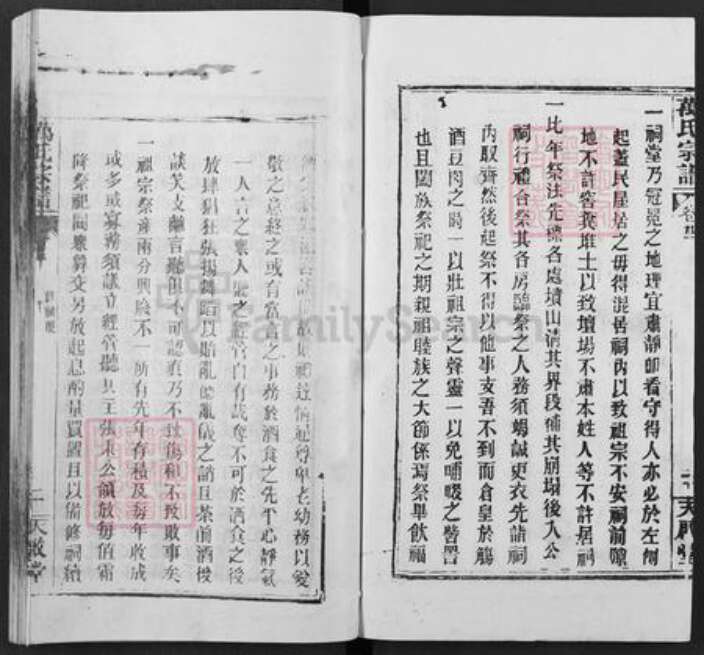 萬氏宗譜
卷四
一祠堂乃冠冕之地理宜肅靜即看守得人亦必於左側
起蓋民屋居之毋得混居祠內以致祖宗不安祠前隙
地不許窖糞堆土以致壇場不肅本姓人等不許居祠
一比年祭法先標各處墳山清其界段補其崩塌後入公
祠行禮合祭其各房臨祭之人務須竭誠更衣先請祠
內取齊然後起祭不得以他事支吾不到而倉皇於觴
酒豆肉之時一以壯祖宗之聲靈一以免哺啜之訾詈
也且闔族祭祀之期親祖睦族之大節係焉祭畢飲福
尊卑老幼務以愛
敬之意將之或有當言之事務於酒食之先平心靜氣
一人言之眾人 之經管自有裁奪不可於酒食之後
放肆猖狂張揚舞蹈以貽亂 亂儀之誚且茶前酒後
談笑支離言聽 不可認真乃不致傷和不致敗事矣
一祖宗祭產兩分興隆不一所有先年存積及每年收成
或多或寡務須議立經管聽其主張未公領放每值霜
降祭祀同眾算交另放起息酌量買置且以備修祠續
天敘堂
FamilySearch